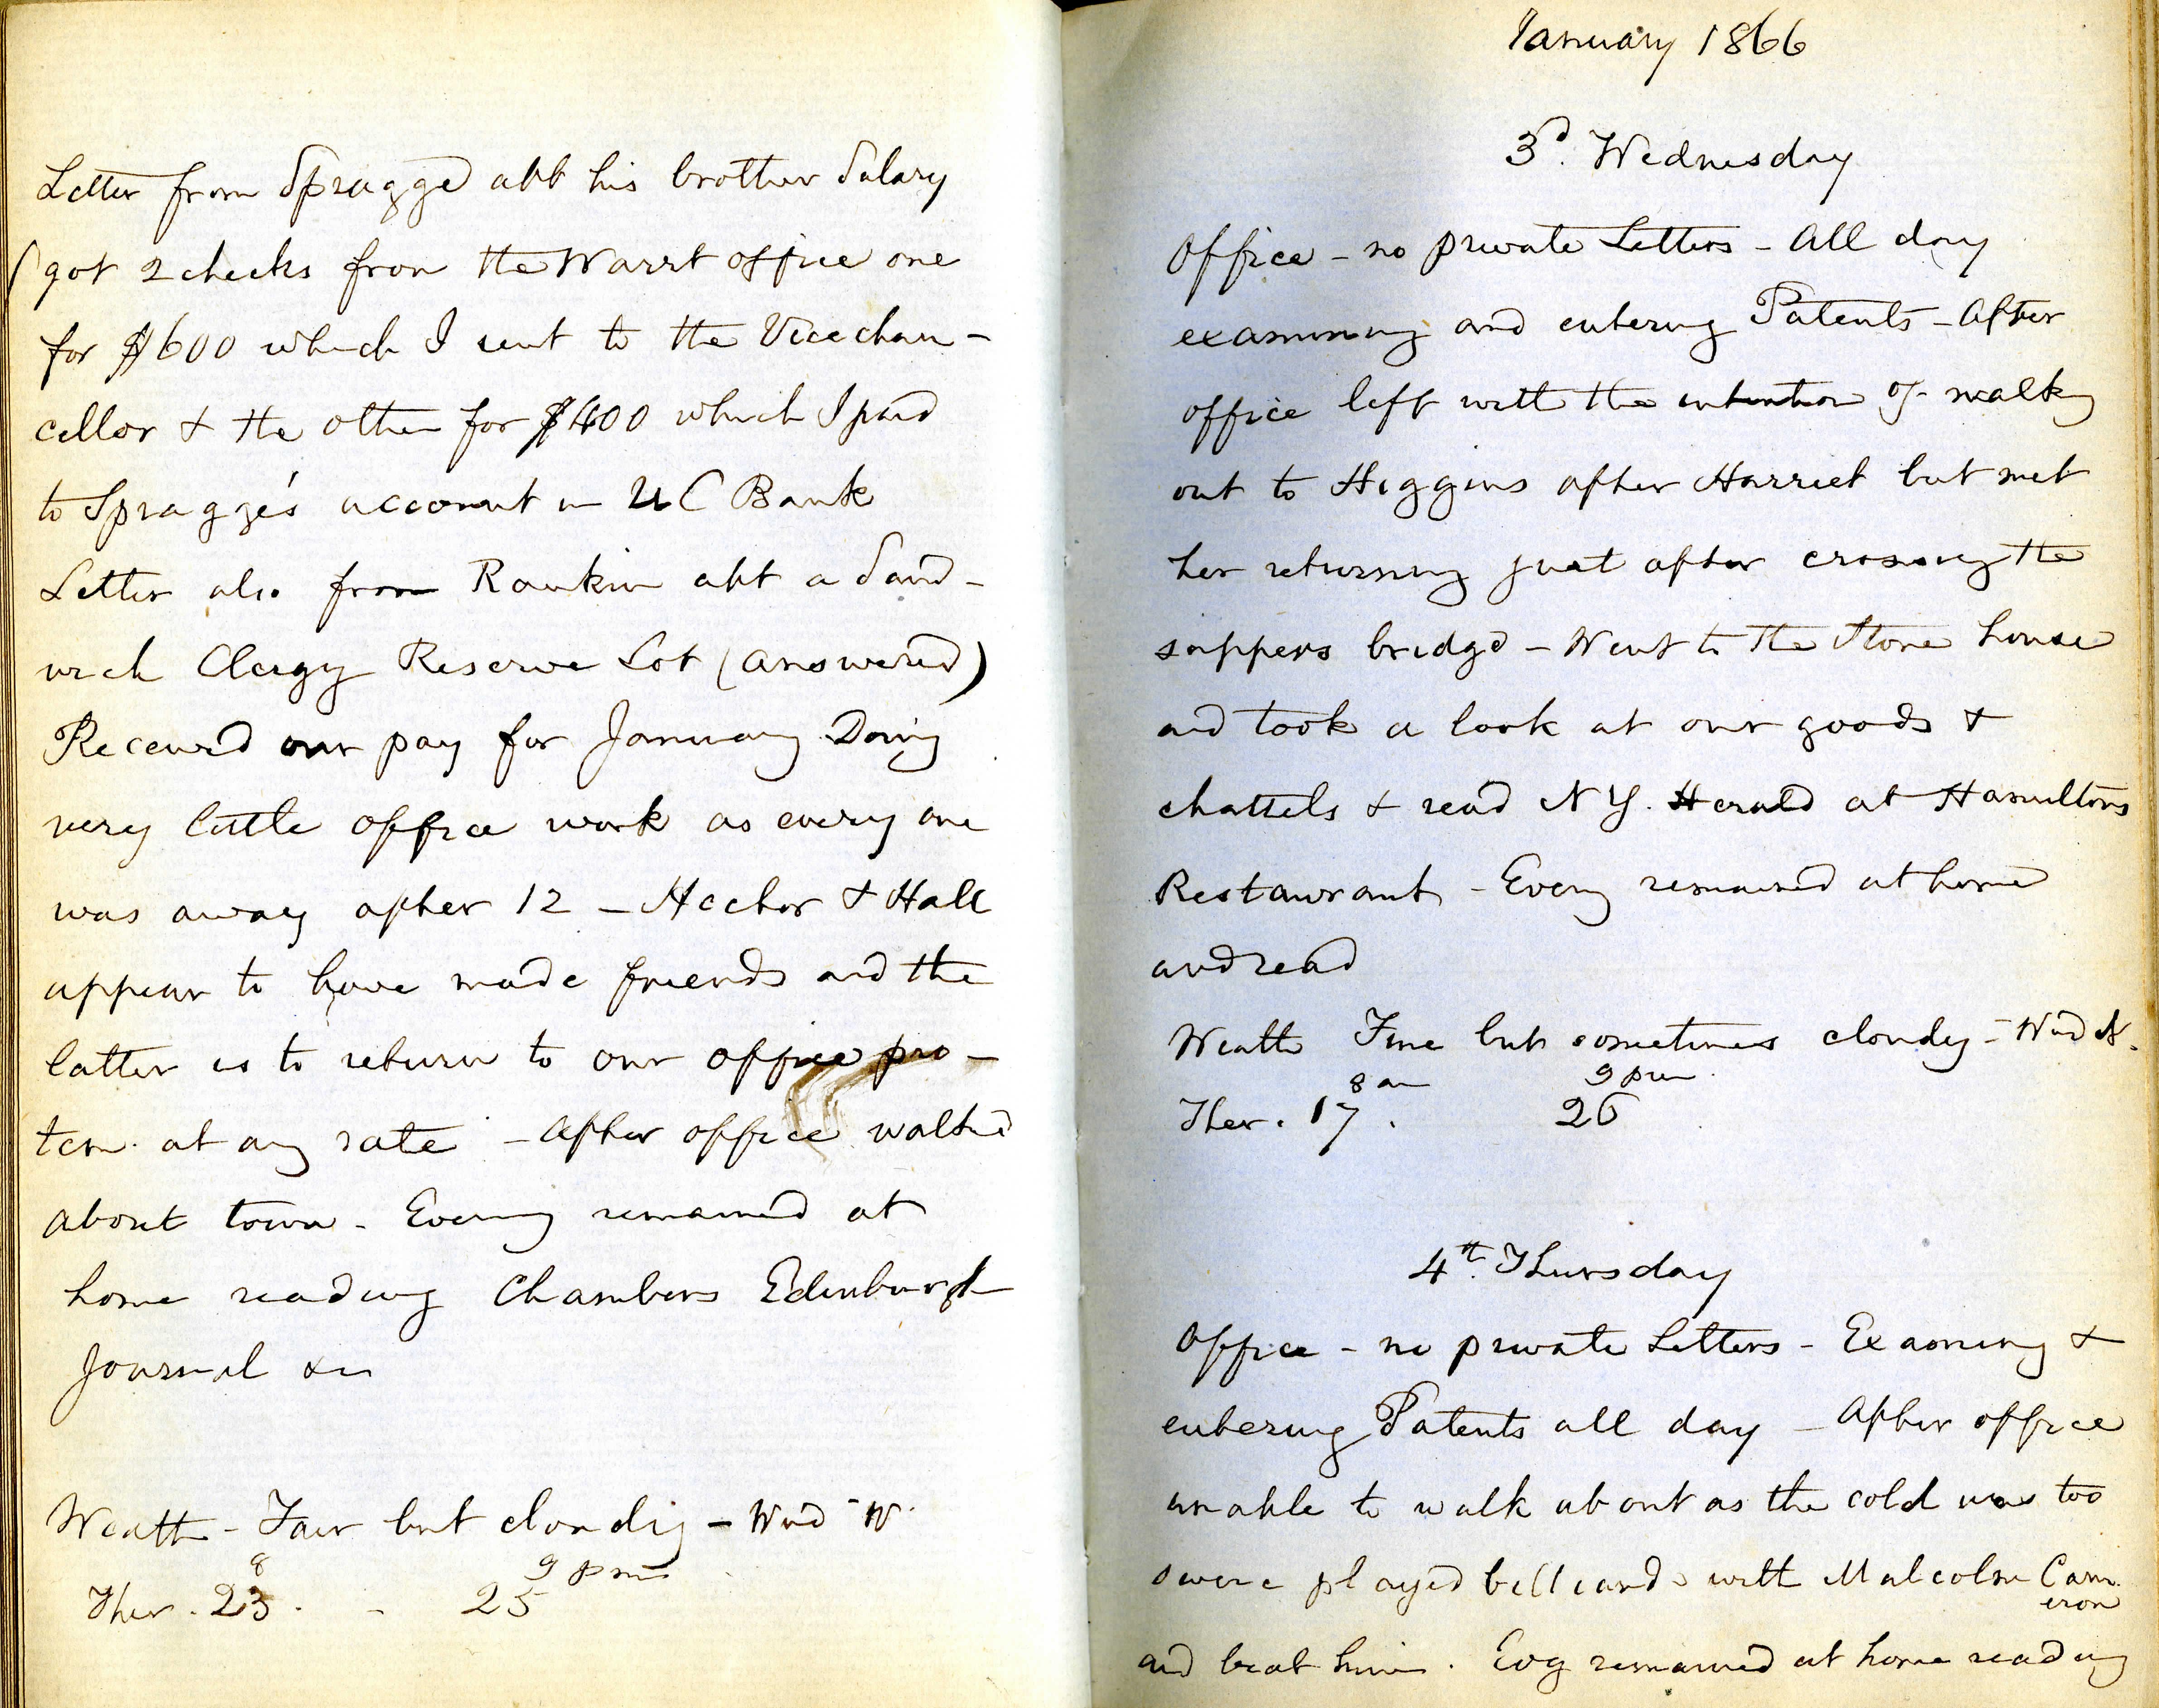 Letter from Spragge abt his brother Salary
(got 2 checks from the Warrt office one
for $600 which I sent to the Vicechan-
cellor & the other for $400 which I paid
to Spragge's account in U C Bank
Letter also from Rankin abt a Sand-
wich Clergy Reserve Lot (answered)
Received our pay for January Doing
very little office work as every one
was away after 12 - Hector & Hall
appear to have made friends and the
latter is to return to our office pro-
tem. at any rate - After office walked
about town - Evening remained at
home reading Chambers Edinburgh
Journal &c
Weath - Fair but cloudy - Wind W.
8 9 pm
Ther. 23. - 25
January 1866
3d. Wednesday
Office - no private Letters - All day
examining and entering Patents - After
office left with the intention of walkg
out to Higgins after Harriet but met
her returning just after crossing the
sappers bridge - Went to the Stone house
and took a look at our goods &
chattels & read N Y. Herald at Hamiltons
Restaurant - Eveng remained at home
and read
Weath Fine but sometimes cloudy - Wind N.
8 am 9 pm
Ther. 17. 26
4th. Thursday
Office - no private Letters - Examing &
entering Patents all day - After office
unable to walk about as the cold was too
severe played billiards with Malcolm Cam
eron
and beat him. Evg remained at home reading